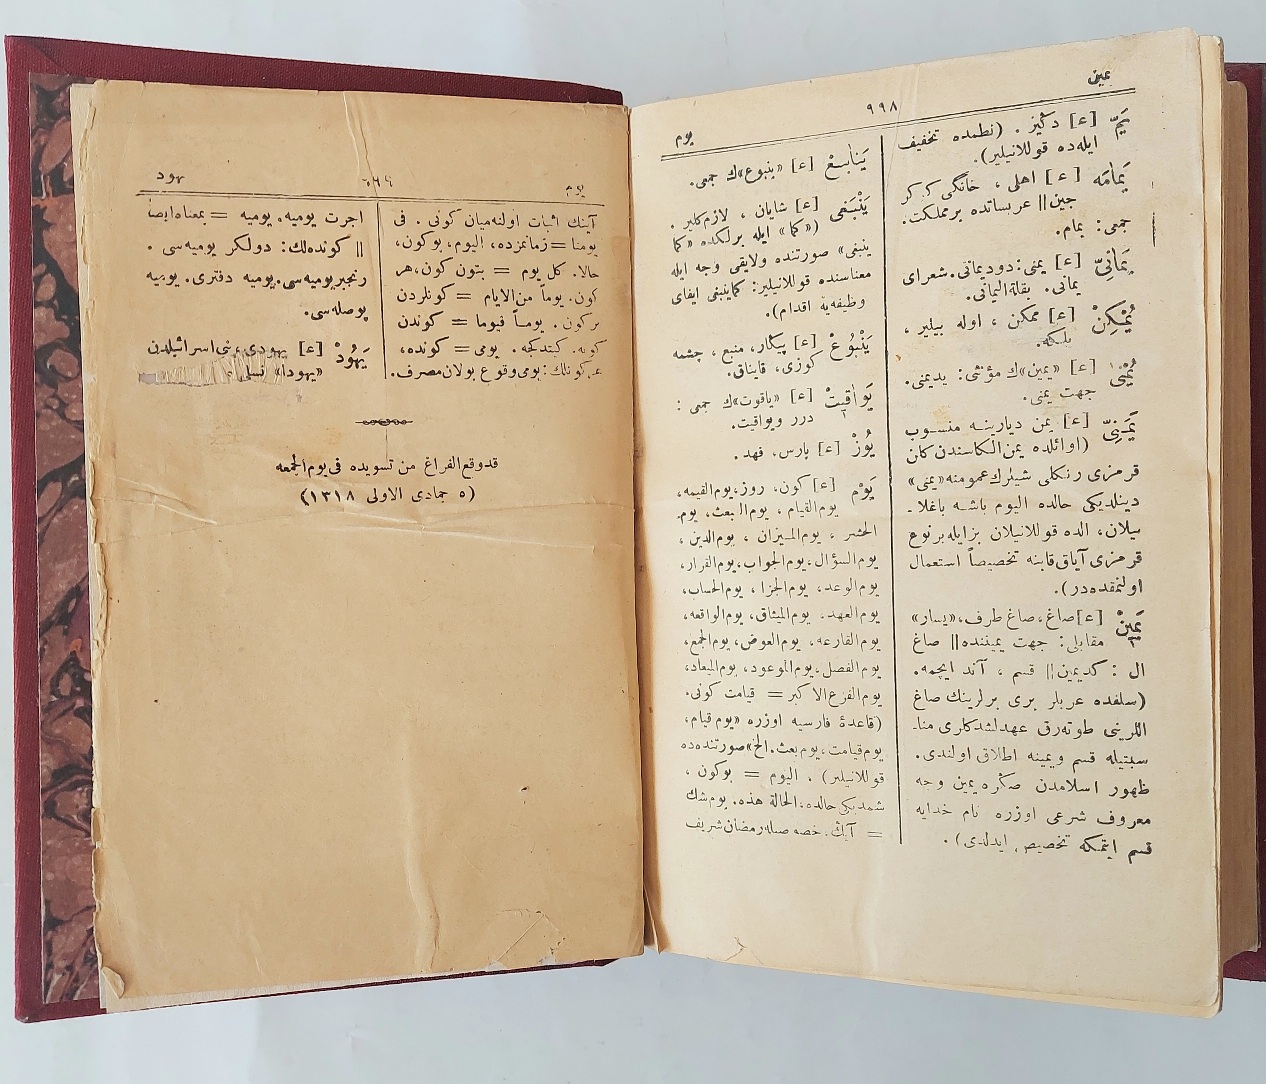 يمين
٩٩٨
يوم
يَمّ [ع] دڭيز . (نظمده تخفيف
ايله ده قوللانيلير).
يَمامَه [ع] اهلى ، خانگى كوكر
جين || عربستانده بر مملكت.
جمعى: يمام.
يَمانِىّ [ع] يمنى: دود يمانى. شعراى
يمانى. بقلة اليمانى.
يُمْكِنْ [ع] ممكن ، اوله بيلير ،
بلكه.
يُمْنٰى [ع] «يمين» ك مؤنثى: يد يمنى.
جهت يمنى.
يَمَنِىّ [ع] يمن ديارينه منسوب
(اوائلده يمن الكاسندن كلن
قرمزى رنكلى شيلرك عمومنه «يمنى»
دينلديكى حالده اليوم باشه باغلا-
نيلان، الده قوللانيلان بز ايله بر نوع
قرمزى آياق قابنه تخصيصاً استعمال
اولنمقده در).
يَمِينْ [ع] صاغ، صاغ طرف، «يسار»
مقابلى: جهت يمينده || صاغ
ال : كد يمين || قسم ، آند ايچمه.
(سلفده عربلر برى برلرينك صاغ
اللرينى طوته رق عهدلشدكلرى منا-
سبتيله قسم و يمينه اطلاق اولندى.
ظهور اسلامدن صكره يمين وجه
معروف شرعى اوزره نام خدايه
قسم ايتمكه تخصيص ايدلدى) .
يَنابيعْ [ع] «ينبوع» ك جمعى.
يَنْبَغى [ع] شايان ، لازم كلير .
(«كما» ايله برلكده «كما
ينبغى» صورتنده ولايقى وجه ايله
معناسنده قوللانيلير: كما ينبغى ايفاى
وظيفه يه اقدام).
يَنْبُوعْ [ع] پيكار، منبع ، چشمه
كوزى، قايناق.
يَواقيتْ [ع] «ياقوت» ك جمعى :
درر و يواقيت.
يُوزْ [ع] بارس، فهد.
يَوْم [ع] كون، روز، يوم القيمه،
يوم القيام ، يوم البعث، يوم
الحشر ، يوم الميزان ، يوم الدين ،
يوم السؤال، يوم الجواب، يوم القرار،
يوم الوعد، يوم الجزا ، يوم الحساب،
يوم العهد، يوم الميثاق، يوم الواقعه،
يوم القارعه، يوم العوض، يوم الجمع،
يوم الفصل، يوم الموعود، يوم الميعاد،
يوم الفزع الاكبر = قيامت كونى.
(قاعدۀ فارسيه اوزره «يوم قيام،
يوم قيامت، يوم بعث. الخ» صورتنده ده
قوللانيلير) . اليوم = بوكون ،
شمديكى حالده، الحالة هذه. يوم شك
= آيك. خصوصيله رمضان شريف
يوم
٩٩٩
يهود
آينك اثبات اولنه ميان كونى . فى
يومنا = زمانمزده، اليوم، بوكون،
حالا. كل يوم = بتون كون، هر
كون. يوماً من الايام = كونلردن
بر كون. يوماً فيوما = كوندن
كونه. كيتدكجه. يومى = كونده،
هر كونلك: يومى وقوع بولان مصرف.
اجرت يوميه. يوميه = بمعناه ايضا
|| كونده لك: دولكر يوميه سى .
رنجبر يوميه سى. يوميه دفترى. يوميه
پوصله سى.
يَهُودْ [ع] يهودى، بنى اسرائيلدن
«يهودا» نسلى.
قد وقع الفراغ من تسويده فى يوم الجمعه
(٥ جمادى الاولى ١٣١٨)